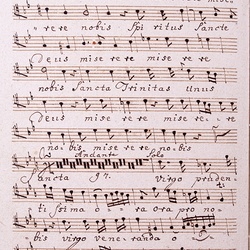 mise-
rere nobis Spiritus Sancte
Deus miserere miserere
nobis Sancta Trinitas Unus
Deus miserere misere-re
nobis miserere nobis
Andante Solo
Sancta 97. virgo pruden-
tissima o-ra ora pro no-
bis virgo veneranda o